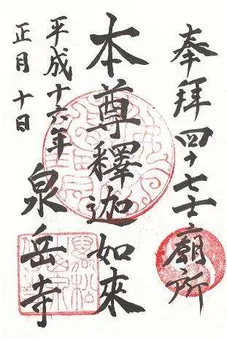 奉拝 四十七士廟所
本尊釋迦如來
平成十六年
正月十日
泉岳寺